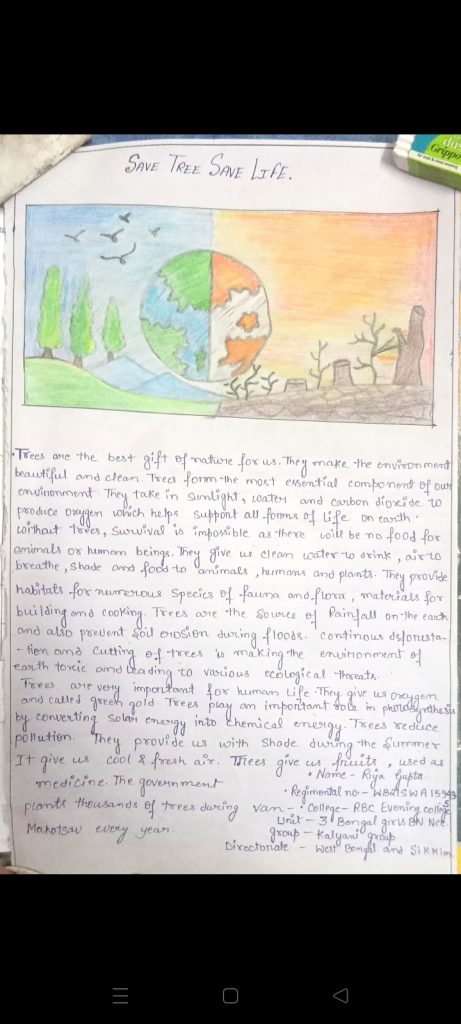 SAVE TREE SAVE LIFE.
Grippo
Trees are the best gift of nature for us. They make the environment
beautiful and clean. Trees form the most essential component of our
environment. They take in sunlight, water and carbon dioxide to
produce oxygen which helps support all forms of life on earth.
Without trees, survival is impossible as there will be no food for
animals or human beings. They give us clean water to drink, air to
breathe, shade and food to animals, humans and plants. They provide
habitats for numerous species of fauna and flora, materials for
building and cooking. Trees are the source of Rainfall on the earth
and also prevent soil erosion during floods. continous deforesta-
-tion and cutting of trees is making the environment of
earth toxic and leading to various ecological threats.
Trees are very important for human life. They give us oxygen
and called green gold Trees play an important role in photosynthesis
by converting solar energy into chemical energy. Trees reduce
pollution. They provide us with shade during the summer
It give us cool & fresh air. Trees give us fruits, used as
medicine. The government
plants thousands of trees during van -
Mahotsav every year.
• Name - Riya Gupta.
• Regimental no -
• College - RBC Evening college
Unit - Bengal girls BN NCC
group - Kalyani group
Directorate - West Bengal and Sikkim